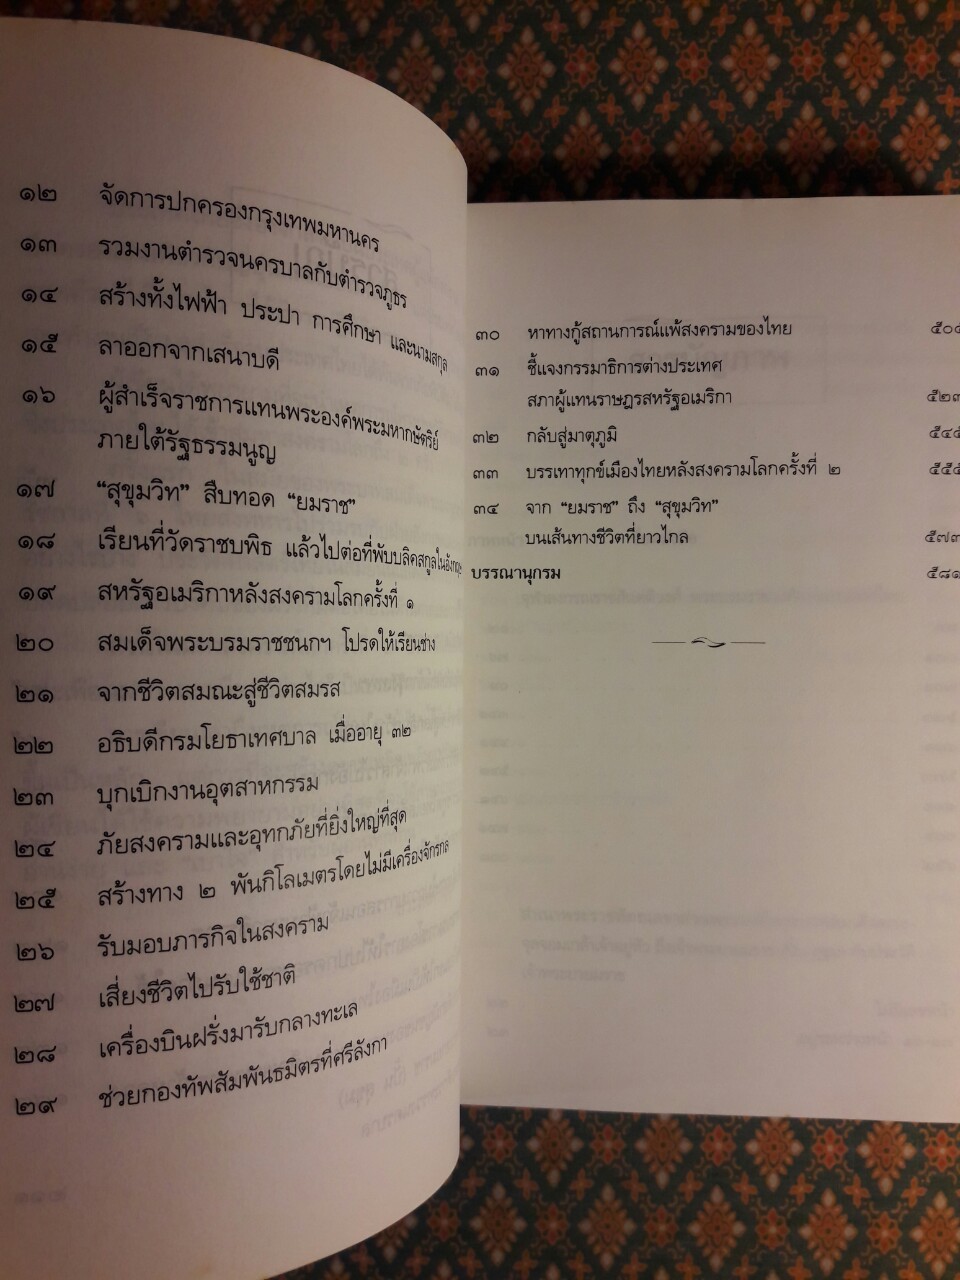 ๑๒ จัดการปกครองกรุงเทพมหานคร
๑๓ รวมงานตำรวจนครบาลกับตำรวจภูธร
๑๔ สร้างทั้งไฟฟ้า ประปา การศึกษา และนามสกุล
๑๕ ลาออกจากเสนาบดี
๑๖ ผู้สำเร็จราชการแทนพระองค์พระมหากษัตริย์
ภายใต้รัฐธรรมนูญ
๑๗ “สุขุมวิท” สืบทอด “ยมราช”
๑๘ เรียนที่วัดราชบพิธ แล้วไปต่อที่พับบลิคสกูลในอังกฤษ
๑๙ สหรัฐอเมริกาหลังสงครามโลกครั้งที่ ๑
๒๐ สมเด็จพระบรมราชชนกฯ โปรดให้เรียนช่าง
๒๑ จากชีวิตสมณะสู่ชีวิตสมรส
๒๒ อธิบดีกรมโยธาเทศบาล เมื่ออายุ ๓๒
๒๓ บุกเบิกงานอุตสาหกรรม
๒๔ ภัยสงครามและอุทกภัยที่ยิ่งใหญ่ที่สุด
๒๕ สร้างทาง ๒ พันกิโลเมตรโดยไม่มีเครื่องจักรกล
๒๖ รับมอบภารกิจในสงคราม
๒๗ เสี่ยงชีวิตไปรับใช้ชาติ
๒๘ เครื่องบินฝรั่งมารับกลางทะเล
๒๙ ช่วยกองทัพสัมพันธมิตรที่ศรีลังกา
๓๐ หาทางกู้สถานการณ์แพ้สงครามของไทย
๓๑ ชี้แจงกรรมาธิการต่างประเทศ
สภาผู้แทนราษฎรสหรัฐอเมริกา ๕๒๓
๓๒ กลับสู่มาตุภูมิ ๕๔๕
๓๓ บรรเทาทุกข์เมืองไทยหลังสงครามโลกครั้งที่ ๒ ๕๕๕
๓๔ จาก “ยมราช” ถึง “สุขุมวิท”
บนเส้นทางชีวิตที่ยาวไกล ๕๗๓
บรรณานุกรม ๕๘๑